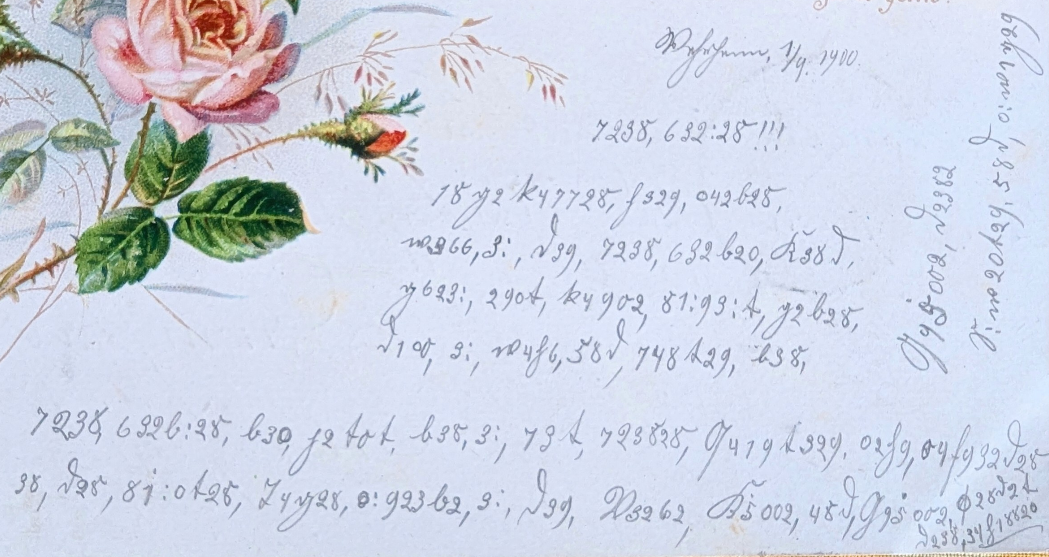 Wehrheim, 1/9. 1900.
7238, 632:28 !!!
18 y2 k47728, f329, 042b28,
w366, 3:, d39, 7238, 632b20, K38d,
y623:, 290t, k4902, 81:93:t, y2b28,
d100, 3:, w4hf6, 58d, 748t29, b38,
7238, 632b:28, b30, j2tot, b38, 3:, 73t, 723828, Q419t329, 02h9, 04f932d28
38, d28, 81:0t28, T4y28, 0:923b2, 3:, d39, V3262, K5002, 48d, G95002, 28d2t
d238, 34h18820
G95002, d2382